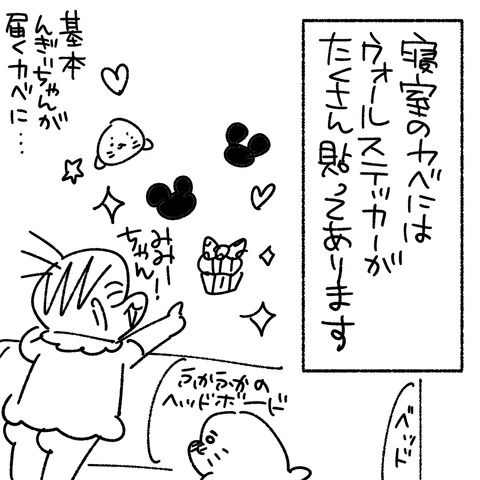 寝室のカベには
ウォールステッカーが
たくさん貼ってあります
基本
んぎぃちゃんが
届くカベに…
みみー
ちゃん!
ふかふかの
ヘッドボード
ベッド